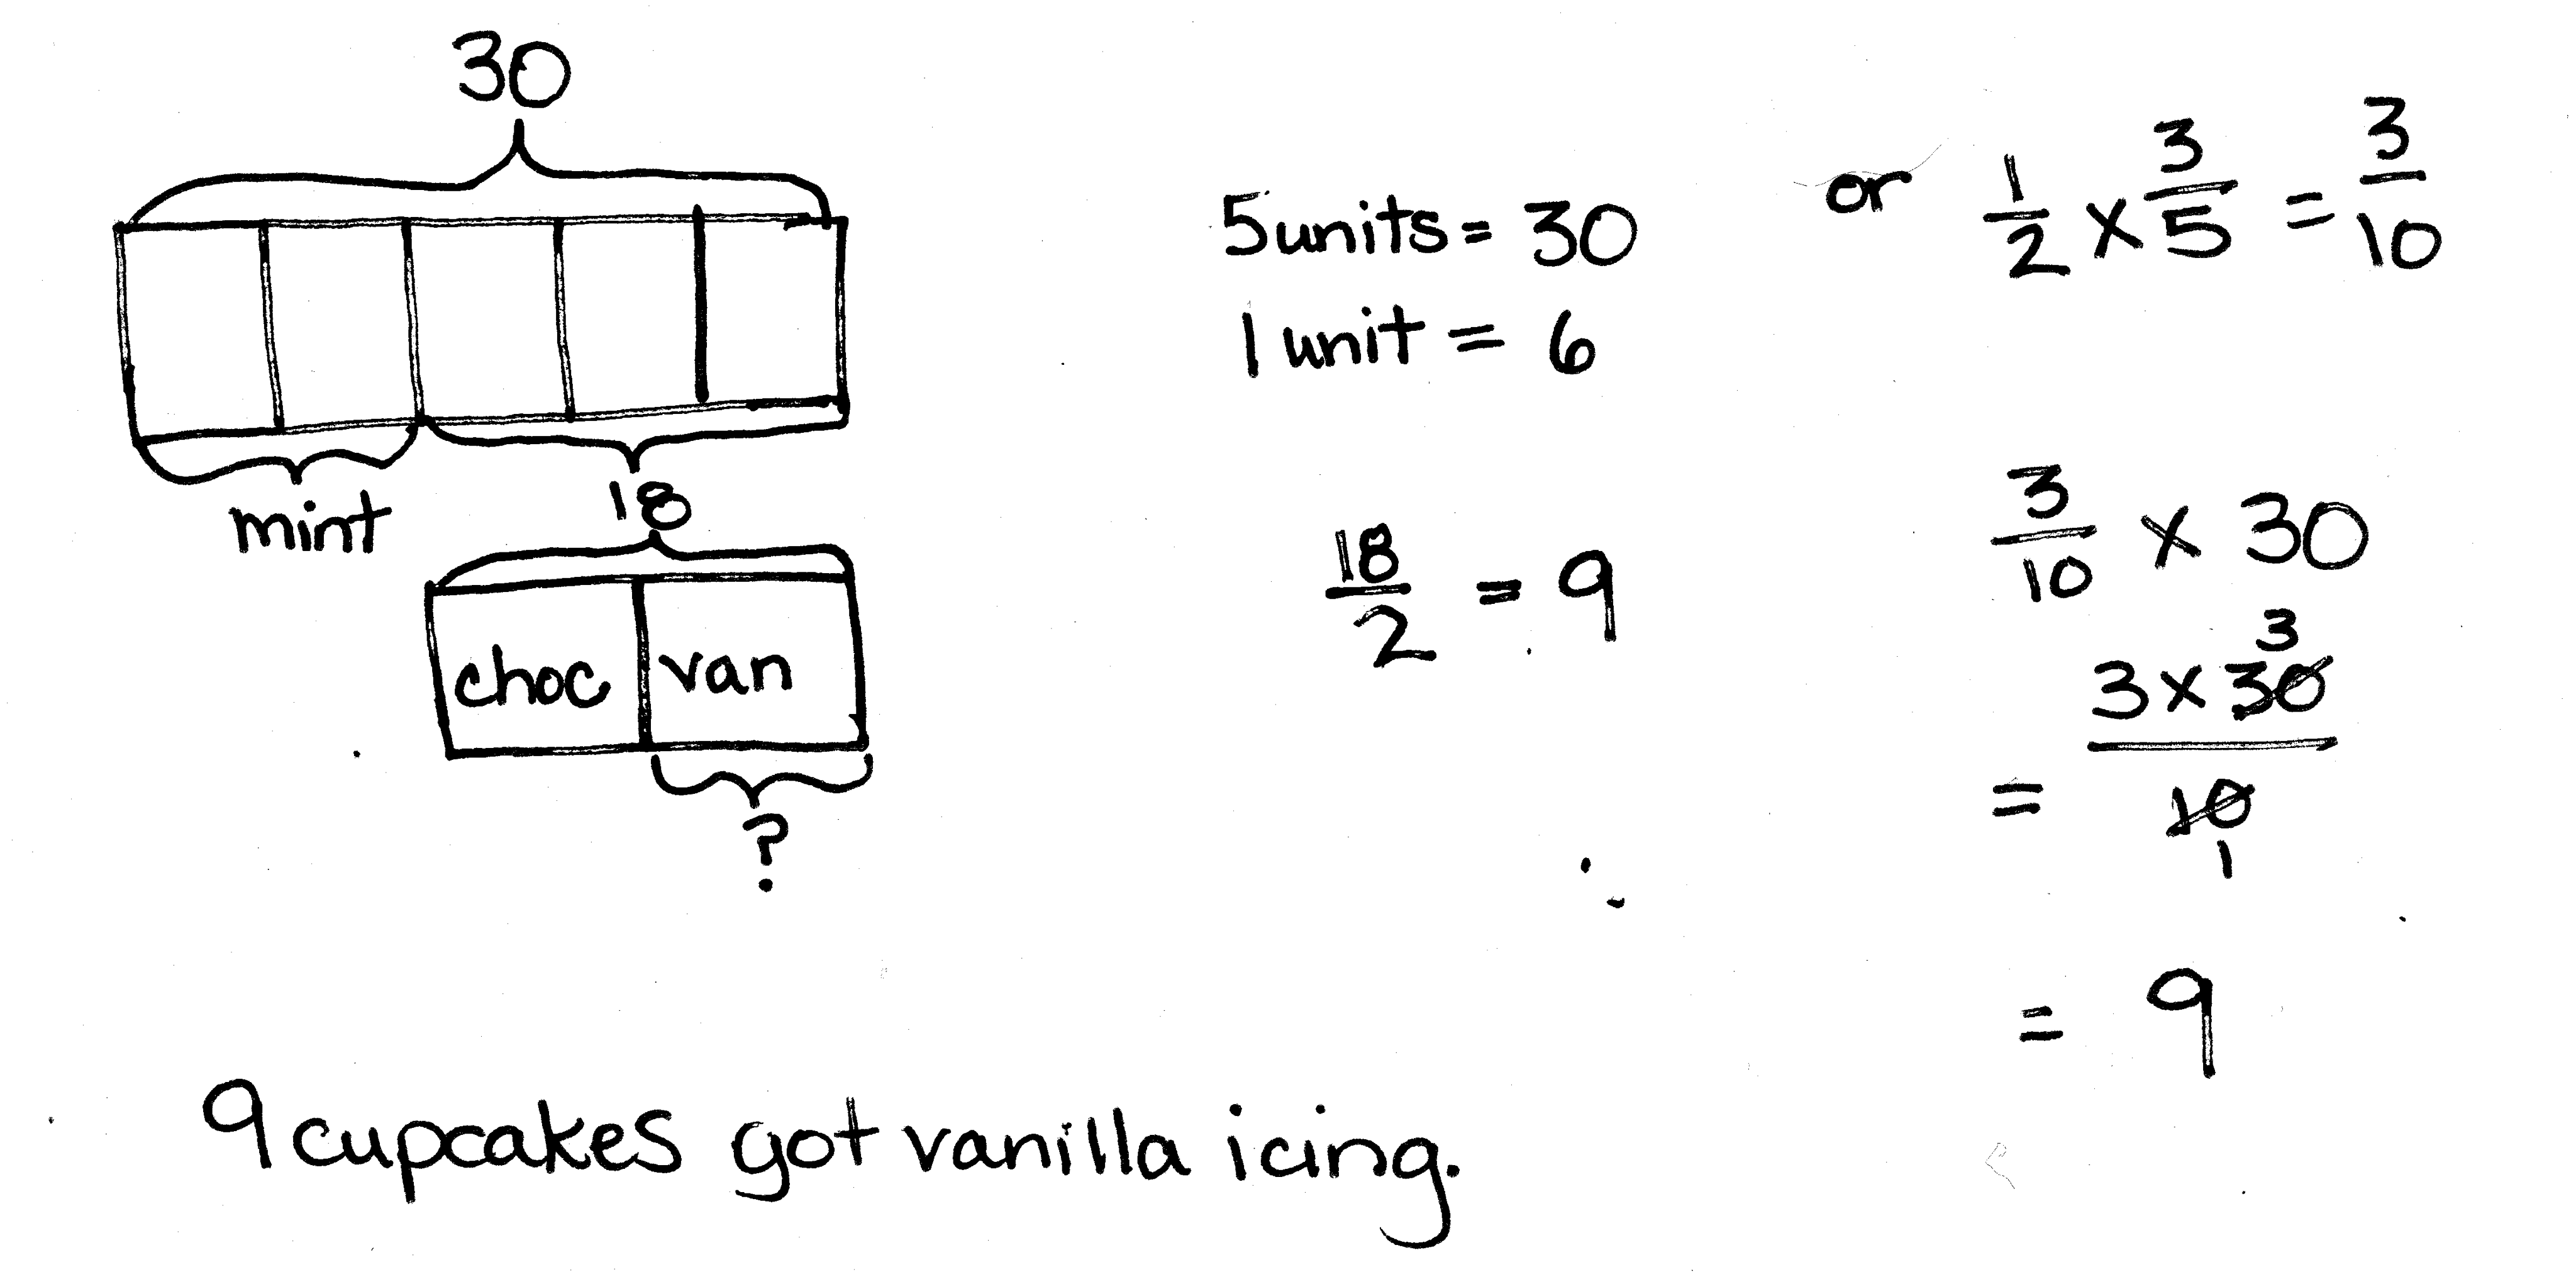 30
mint
18
choc van
?
5 units = 30
1 unit = 6
18/2 = 9
or 1/2 × 3/5 = 3/10
3/10 × 30
3
= 3 × 30/10
1
= 9
9 cupcakes got vanilla icing.